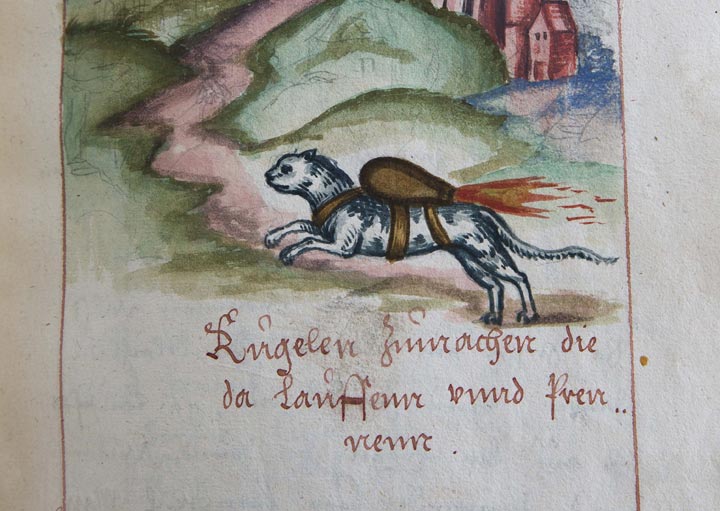 Kugelen zumachen die
da lauffenn vnnd Pren..
nenn.